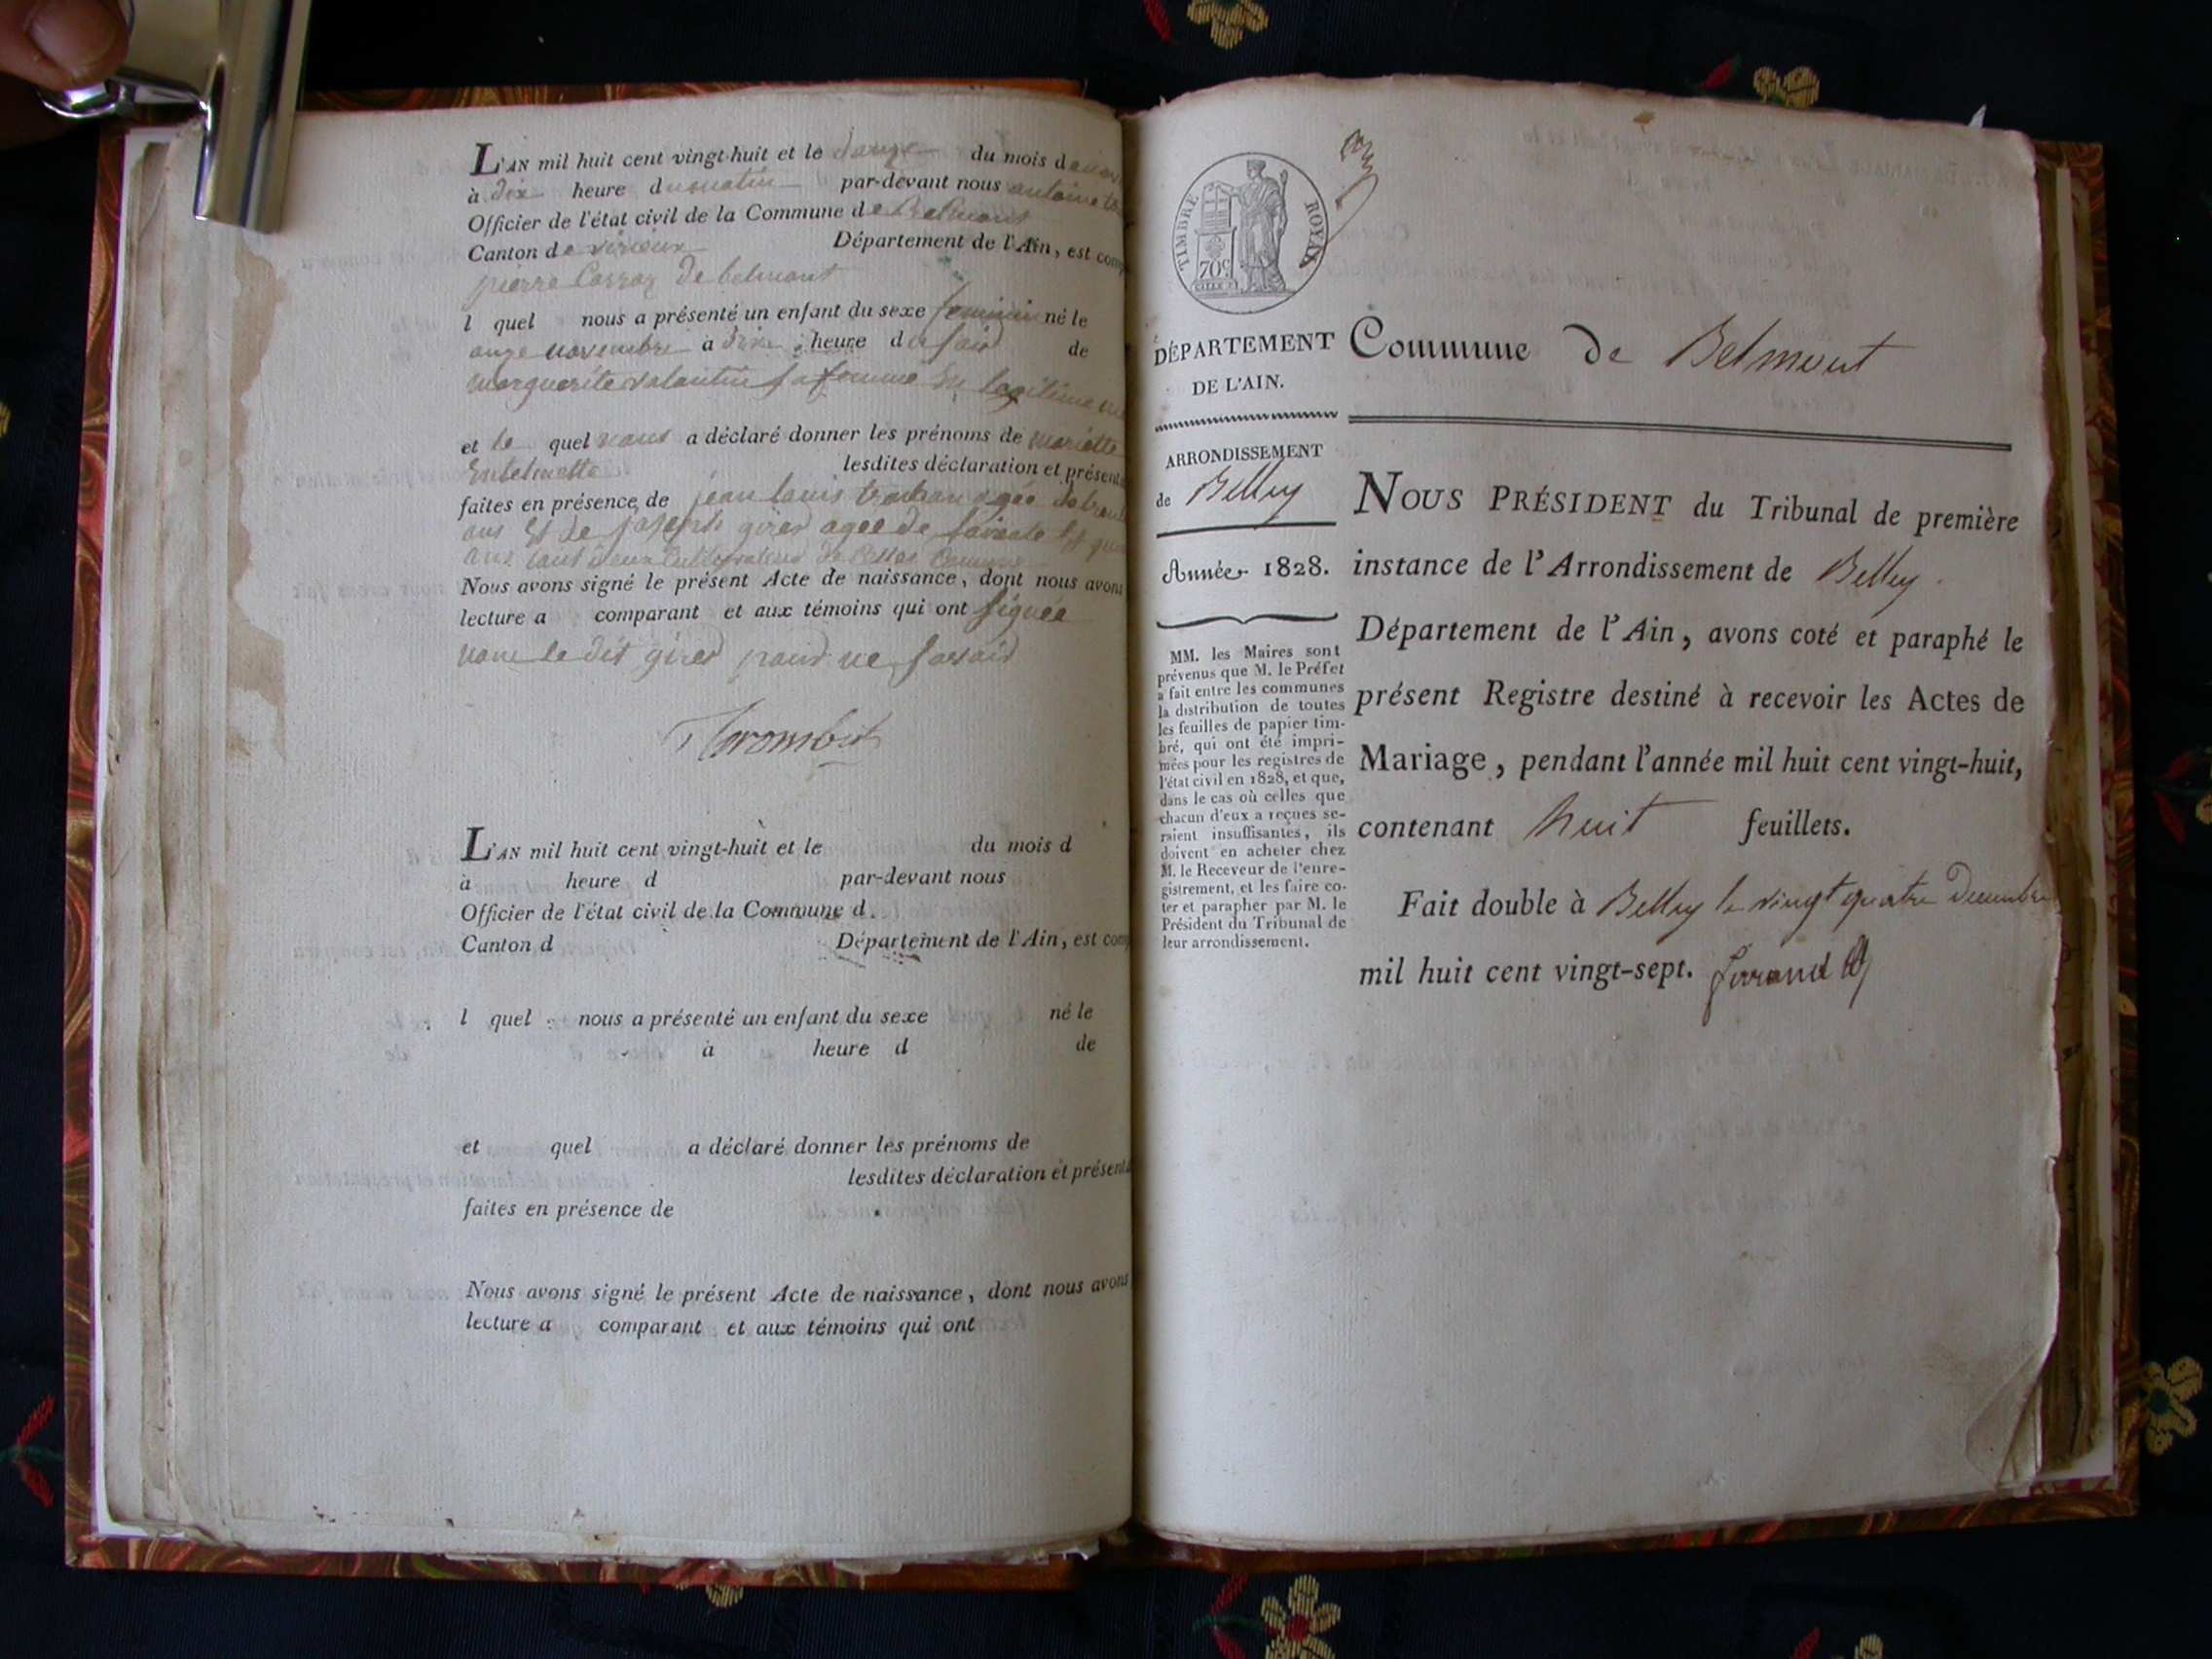 L'AN mil huit cent vingt-huit et le douze du mois de
à dix heure du matin par-devant nous antoine
Officier de l'état civil de la Commune de Belmont
Canton de virieux Département de l'Ain, est comp
pierre Carraz de belmont
l quel nous a présenté un enfant du sexe feminin né le
onze novembre à dix heure du soir de
marguerite valantin sa femme En legitime
et le quel nous a déclaré donner les prénoms de mariette
lesdites déclaration et présent
faites en présence de jean louis agée de
ans Et de joseph girer agee de soixante Et
ans tout deux Cultivateurs
Nous avons signé le présent Acte de naissance, dont nous avons
lecture a comparant et aux témoins qui ont signée
non le dit girer pour ne savoir
Trombert
L'AN mil huit cent vingt-huit et le du mois d
à heure d par-devant nous
Officier de l'état civil de la Commune d
Canton d Département de l'Ain, est comp
l quel nous a présenté un enfant du sexe né le
à heure d de
et quel a déclaré donner les prénoms de
lesdites déclaration et présenta
faites en présence de
Nous avons signé le présent Acte de naissance, dont nous avons
lecture a comparant et aux témoins qui ont
TIMBRE ROYAL
70c
DÉPARTEMENT
DE L'AIN.
ARRONDISSEMENT
de Belley
Année 1828.
MM. les Maires sont
prévenus que M. le Préfet
a fait entre les communes
la distribution de toutes
les feuilles de papier tim-
bré, qui ont été impri-
mées pour les registres de
l'état civil en 1828, et que,
dans le cas où celles que
chacun d'eux a reçues se-
raient insuffisantes, ils
doivent en acheter chez
M. le Receveur de l'enre-
gistrement, et les faire co-
ter et parapher par M. le
Président du Tribunal de
leur arrondissement.
Commune de Belmont
NOUS PRÉSIDENT du Tribunal de première
instance de l'Arrondissement de Belley.
Département de l'Ain, avons coté et paraphé le
présent Registre destiné à recevoir les Actes de
Mariage, pendant l'année mil huit cent vingt-huit,
contenant huit feuillets.
Fait double à Belley le vingt quatre Decembre
mil huit cent vingt-sept.